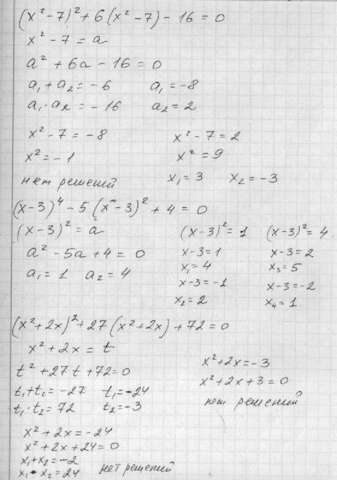 (x²-7)²+6(x²-7)-16=0
x²-7=a
a²+6a-16=0
a₁+a₂=-6 a₁=-8
a₁·a₂=-16 a₂=2
x²-7=-8 x²-7=2
x²=-1 x²=9
нет решений x₁=3 x₂=-3
(x-3)⁴-5(x-3)²+4=0
(x-3)²=a (x-3)²=1 (x-3)²=4
a²-5a+4=0 x-3=1 x-3=2
a₁=1 a₂=4 x₁=4 x₃=5
x-3=-1 x-3=-2
x₂=2 x₄=1
(x²+2x)²+27(x²+2x)+72=0
x²+2x=t x²+2x=-3
t²+27t+72=0 x²+2x+3=0
t₁+t₂=-27 t₁=-24 нет решений
t₁·t₂=72 t₂=-3
x²+2x=-24
x²+2x+24=0
x₁+x₂=-2
x₁·x₂=24 нет решений